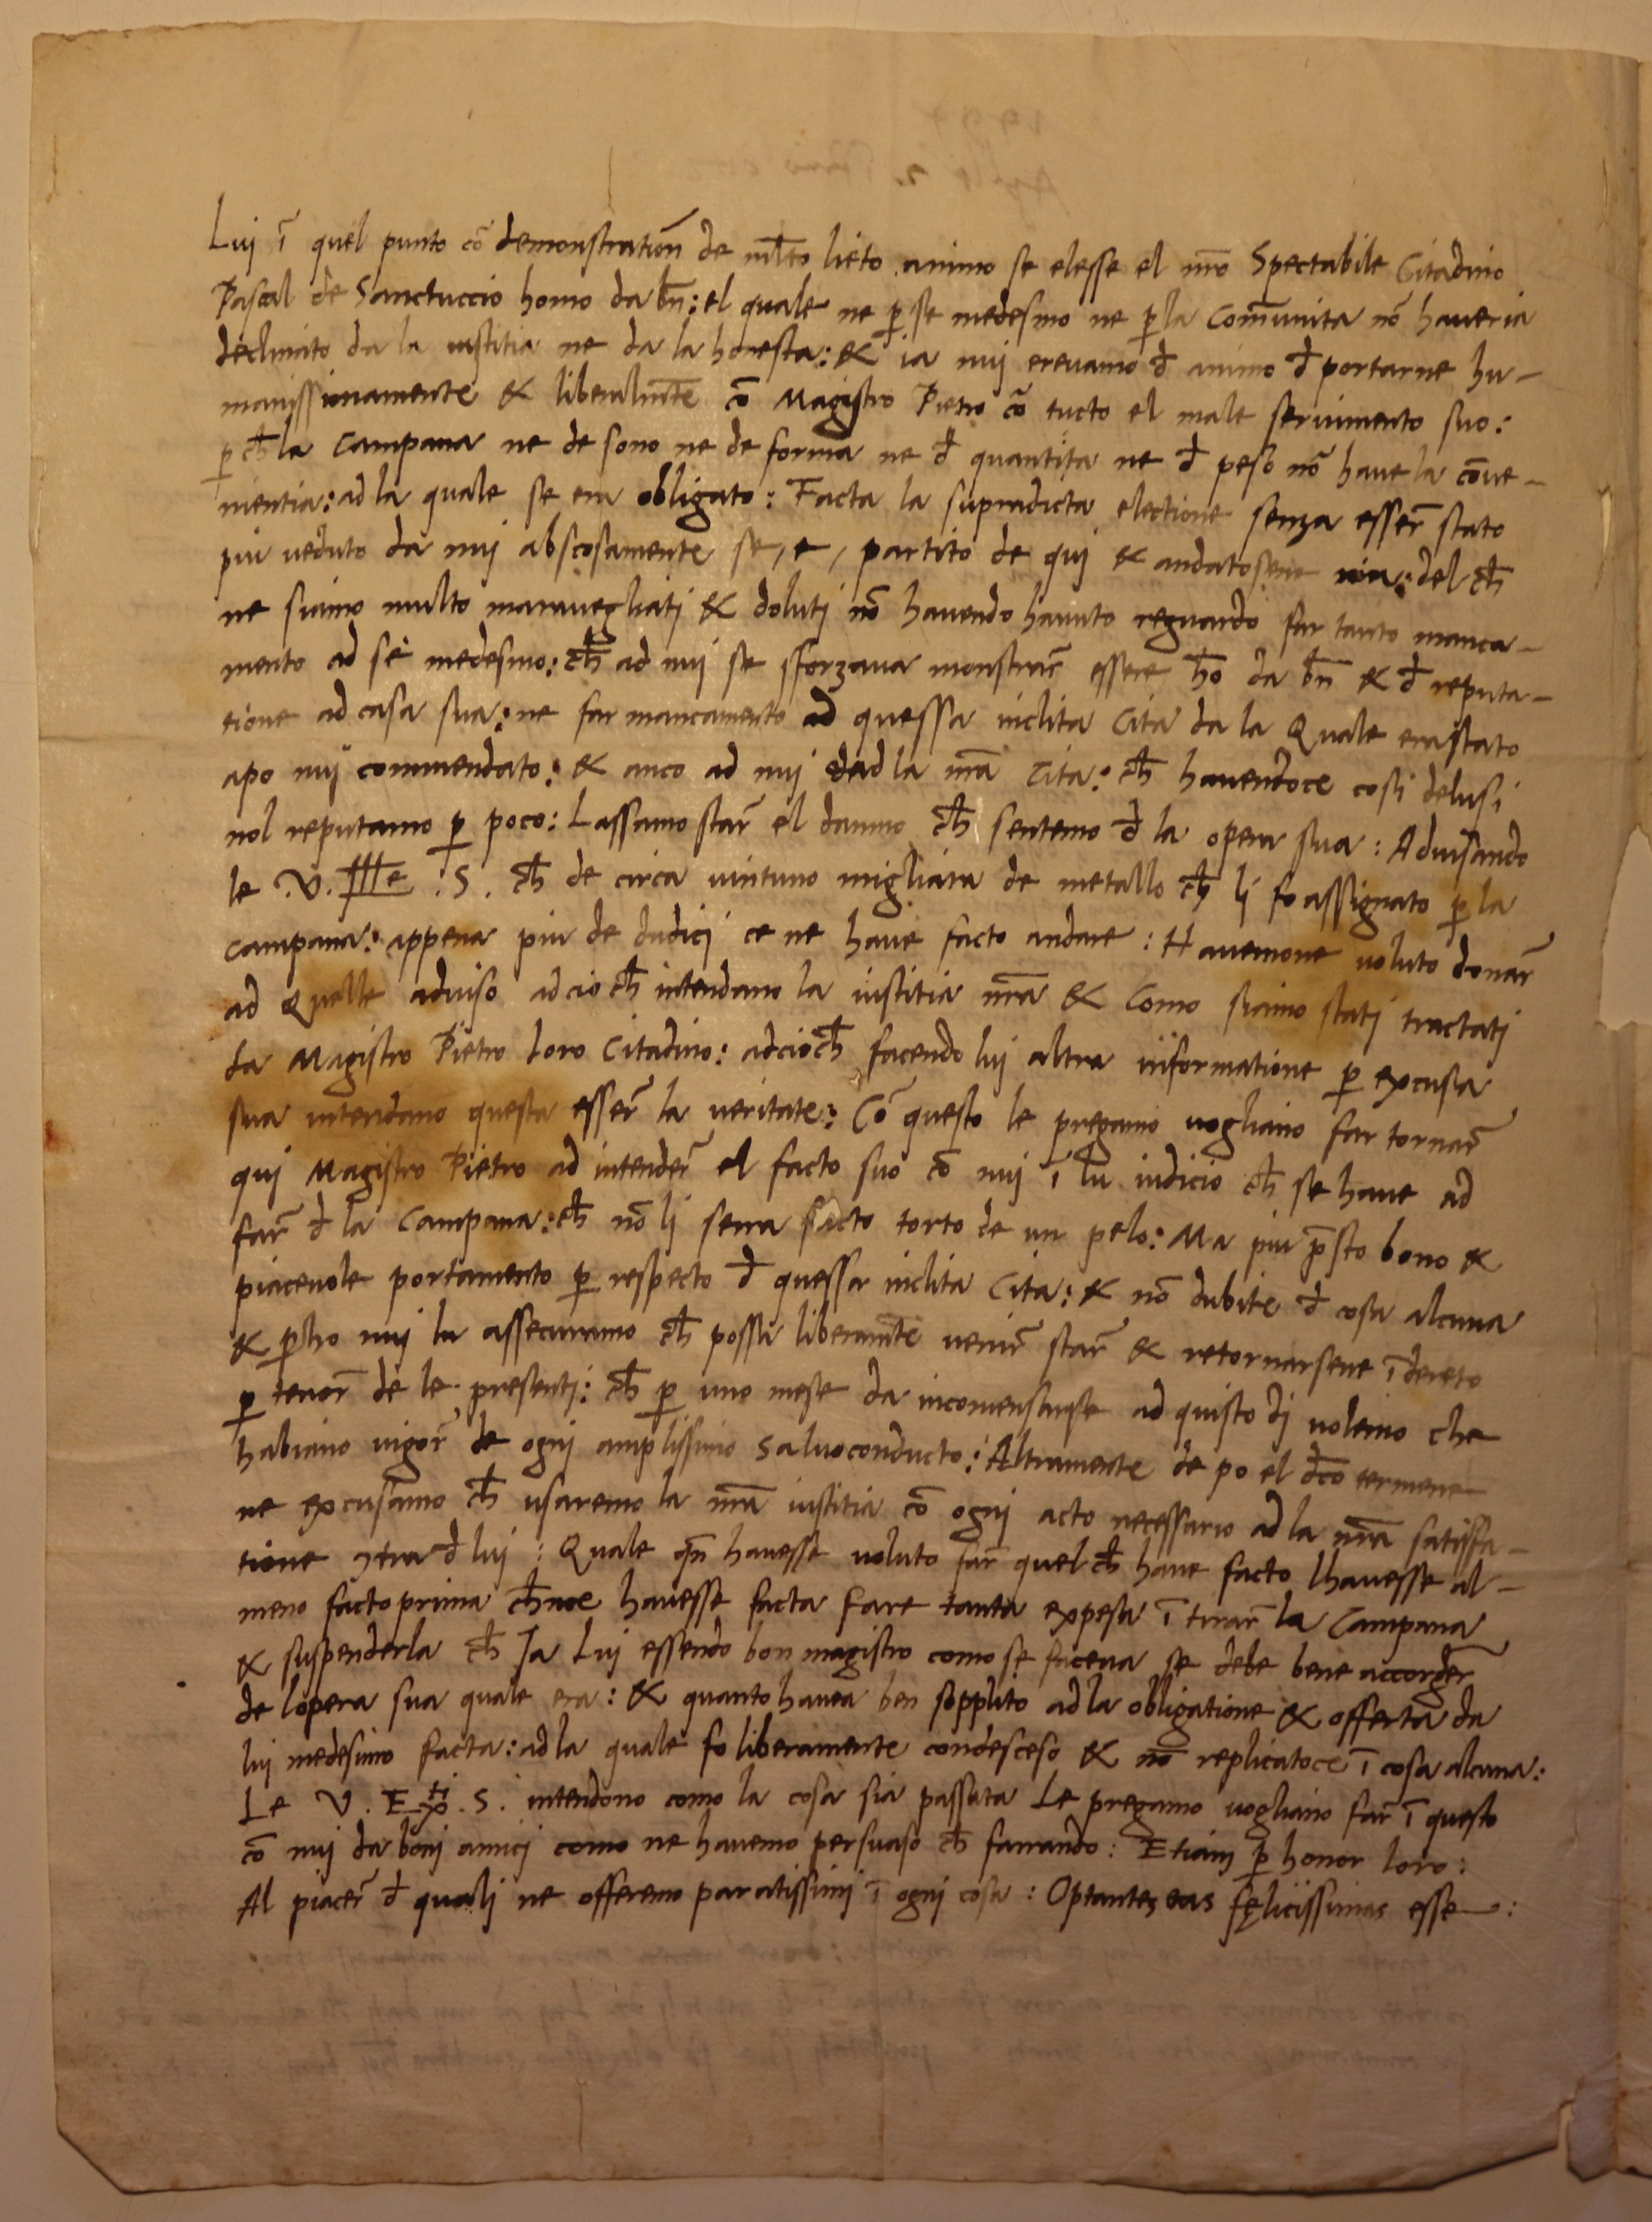 Lui ī quel punto cō demonstratiōn de ml̄to lieto animo se elesse el nr̄o Spectabile Citadino
Pascal de Sanctuccio homo da bn̄: el quale ne ꝑ se medesmo ne ꝑ la Com̄unita nō haueria
declinato da la iustitia ne da la honesta: & ia nuj erevamo đ animo đ portarne hu-
manissimamente & liberalmēte cō Magistro Pietro cō tucto el male seruimento suo:
ꝑ ch̄ la Campana ne de sono ne de forma ne đ quantita ne đ peso nō haue la cōue-
nientia: ad la quale se era obligato: Facta la supradicta electione senza esser̄ stato
piu ueduto da nuj abscosamente se, e, partito de quj & andatosene uia: del ch̄
ne siamo multo marauegliatj & dolutj nō hauendo hauuto reguardo far tanto manca-
mento ad se medesmo: ch̄ ad nuj se sforzaua monstrar̄ essere h̄o da bn̄ & đ reputa-
tione ad casa sua: ne far mancamento ad quessa inclita Cita da la Quale era stato
apo nuj commendato: & anco ad nuj & ad la nr̄a Cita: ch̄ hauendoce cosi delusi
nol reputamo ꝑ poco: Lassamo star̄ el danno ch̄ sentemo đ la opera sua: Aduisando
le .V. Ille .S. ch̄ de circa uintuno migliara de metallo ch̄ lj fo assignato ꝑ la
campana: appena piu de dudici ce ne haue facto andare: Hauemone uoluto donar̄
ad Quelle aduiso adcioch̄ intendano la iustitia nr̄a & Como siamo statj tractatj
da Magistro Pietro loro Citadino: adcioch̄ facendo luj altra īformatione ꝑ excusa
sua intendano questa esser̄ la ueritate: Cō questo le pregamo uogliano far tornar̄
quj Magistro Pietro ad intender̄ el facto suo cō nuj ī lu iudicio ch̄ se haue ad
far̄ đ la Campana: ch̄ nō lj serra facto torto de un pelo: Ma piu p̄sto bono &
piaceuole portamento ꝑ respecto đ quessa inclita Cita: & nō dubite đ cosa alcuna
& ꝑho nuj lu assecuramo ch̄ possa liberamēte uenir̄ star̄ & retornarsene ī dereto
ꝑ tenor̄ de le presentj: ch̄ ꝑ uno mese da incomensarse ad quisto dj uolemo che
habiano uigor̄ de ognj amplissimo saluoconducto: Altramente de po el dc̄o termene
ne excusamo ch̄ usaremo la nr̄a iustitia cō ognj acto necessario ad la nr̄a satisfa-
tione ꝯtra đ luj: Quale qn̄ hauesse uoluto far̄ quel ch̄ haue facto lhauesse al-
meno facto prima ch̄ nce hauesse facta fare tanta expesa ī tirar̄ la Campana
& suspenderla ch̄ Ja Luj essendo bon magistro como se faceua se debe bene accorder̄
de lopera sua quale era: & quanto hauea ben sopplito ad la obligatione & offerta da
luj medesimo facta: ad la quale fo liberamente condesceso & nō replicatoce ī cosa alcuna:
Le V. Ex.ti S. intendono como la cosa sia passata Le pregamo uogliano far̄ ī questo
cō nuj da bonj amicj como ne hauemo persuaso ch̄ farrando: Etiam ꝑ honor loro:
Al piacer̄ đ qualj ne offeremo paratissimj ī ognj cosa: Optantes eas fęlicissimas esse: